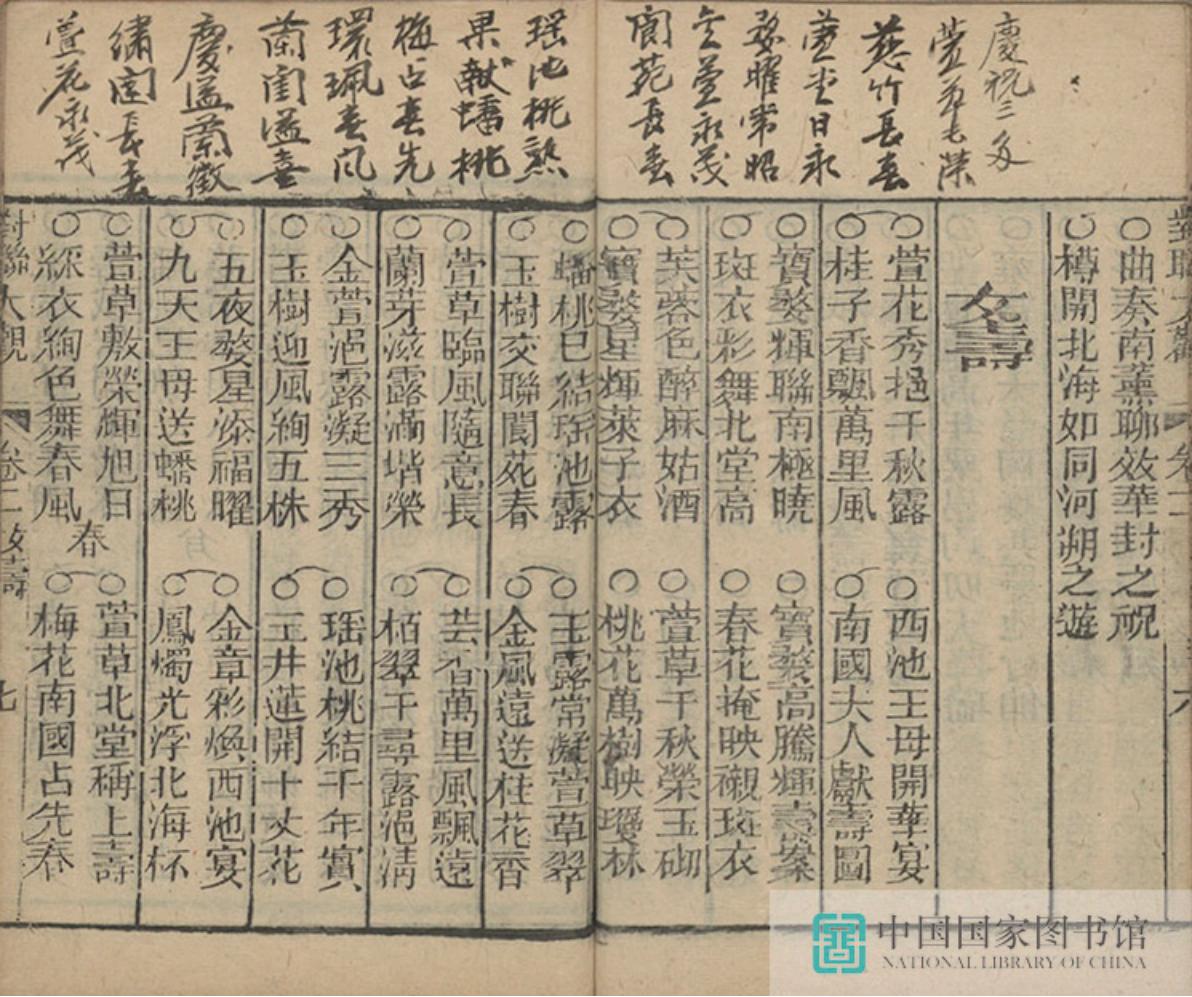 慶祝三多
萱草長榮
慈竹長春
萱堂日永
婺曜常昭
萱永茂
閬苑長春
瑶池桃熟
果献蟠桃
梅占春先
環珮春风
蘭闺溢喜
慶溢蘭徵
繡閣長春
萱花永茂
對聯大觀
卷二
六
曲奏南薰聊效華封之祝
樽開北海如同河朔之遊
女壽
萱花秀挹千秋露
桂子香飄萬里風
寶婺輝聯南極曉
斑衣彩舞北堂高
芙蓉色醉麻姑酒
寶婺星輝萊子衣
西池王母開華宴
南國夫人獻壽圖
寶婺高騰輝壽案
春花掩映襯斑衣
萱草千秋榮玉砌
桃花萬樹映瓊林
蟠桃已結瑶池露
玉樹交聯閬苑春
萱草臨風隨意長
蘭芽滋露滿堦榮
金萱浥露凝三秀
玉樹迎風絢五株
五夜婺星添福曜
九天王母送蟠桃
萱草敷榮輝旭日
綵衣絢色舞春風
玉露常凝萱草翠
金風遠送桂花香
芸香萬里風飄遠
栢翠千尋露浥清
瑶池桃結千年實
玉井蓮開十丈花
金章彩煥西池宴
鳳燭光浮北海杯
春
萱草北堂稱上壽
梅花南國占先春
對聯大觀
卷二女壽
七
中国国家图书馆
NATIONAL LIBRARY OF CHINA